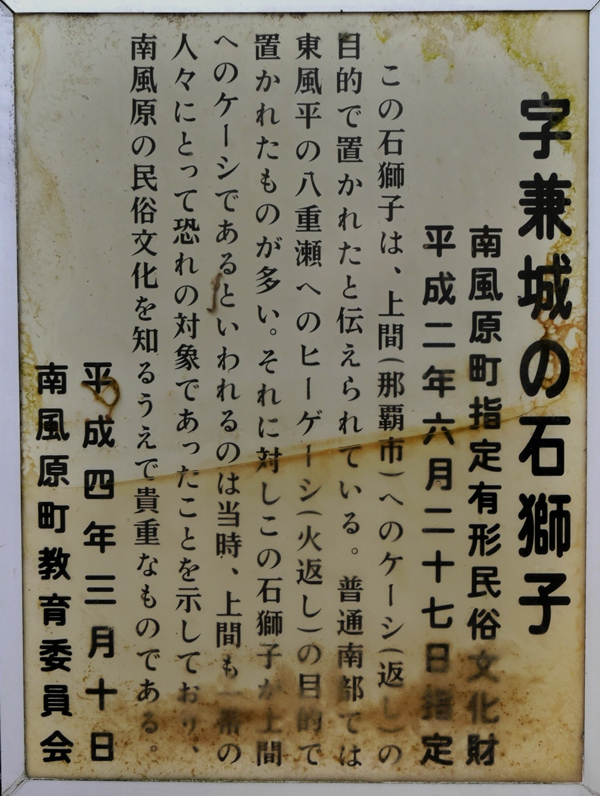 字兼城の石獅子
南風原町指定有形民俗文化財
平成二年六月二十七日指定
この石獅子は、上間(那覇市)へのケーシ(返し)の
目的で置かれたと伝えられている。普通南部では
東風平の八重瀬へのヒーゲーシ(火返し)の目的で
置かれたものが多い。それに対しこの石獅子が上間
へのケーシであるといわれるのは当時、上間も一帯の
人々にとって恐れの対象であったことを示しており、
南風原の民俗文化を知るうえで貴重なものである。
平成四年三月十日
南風原町教育委員会